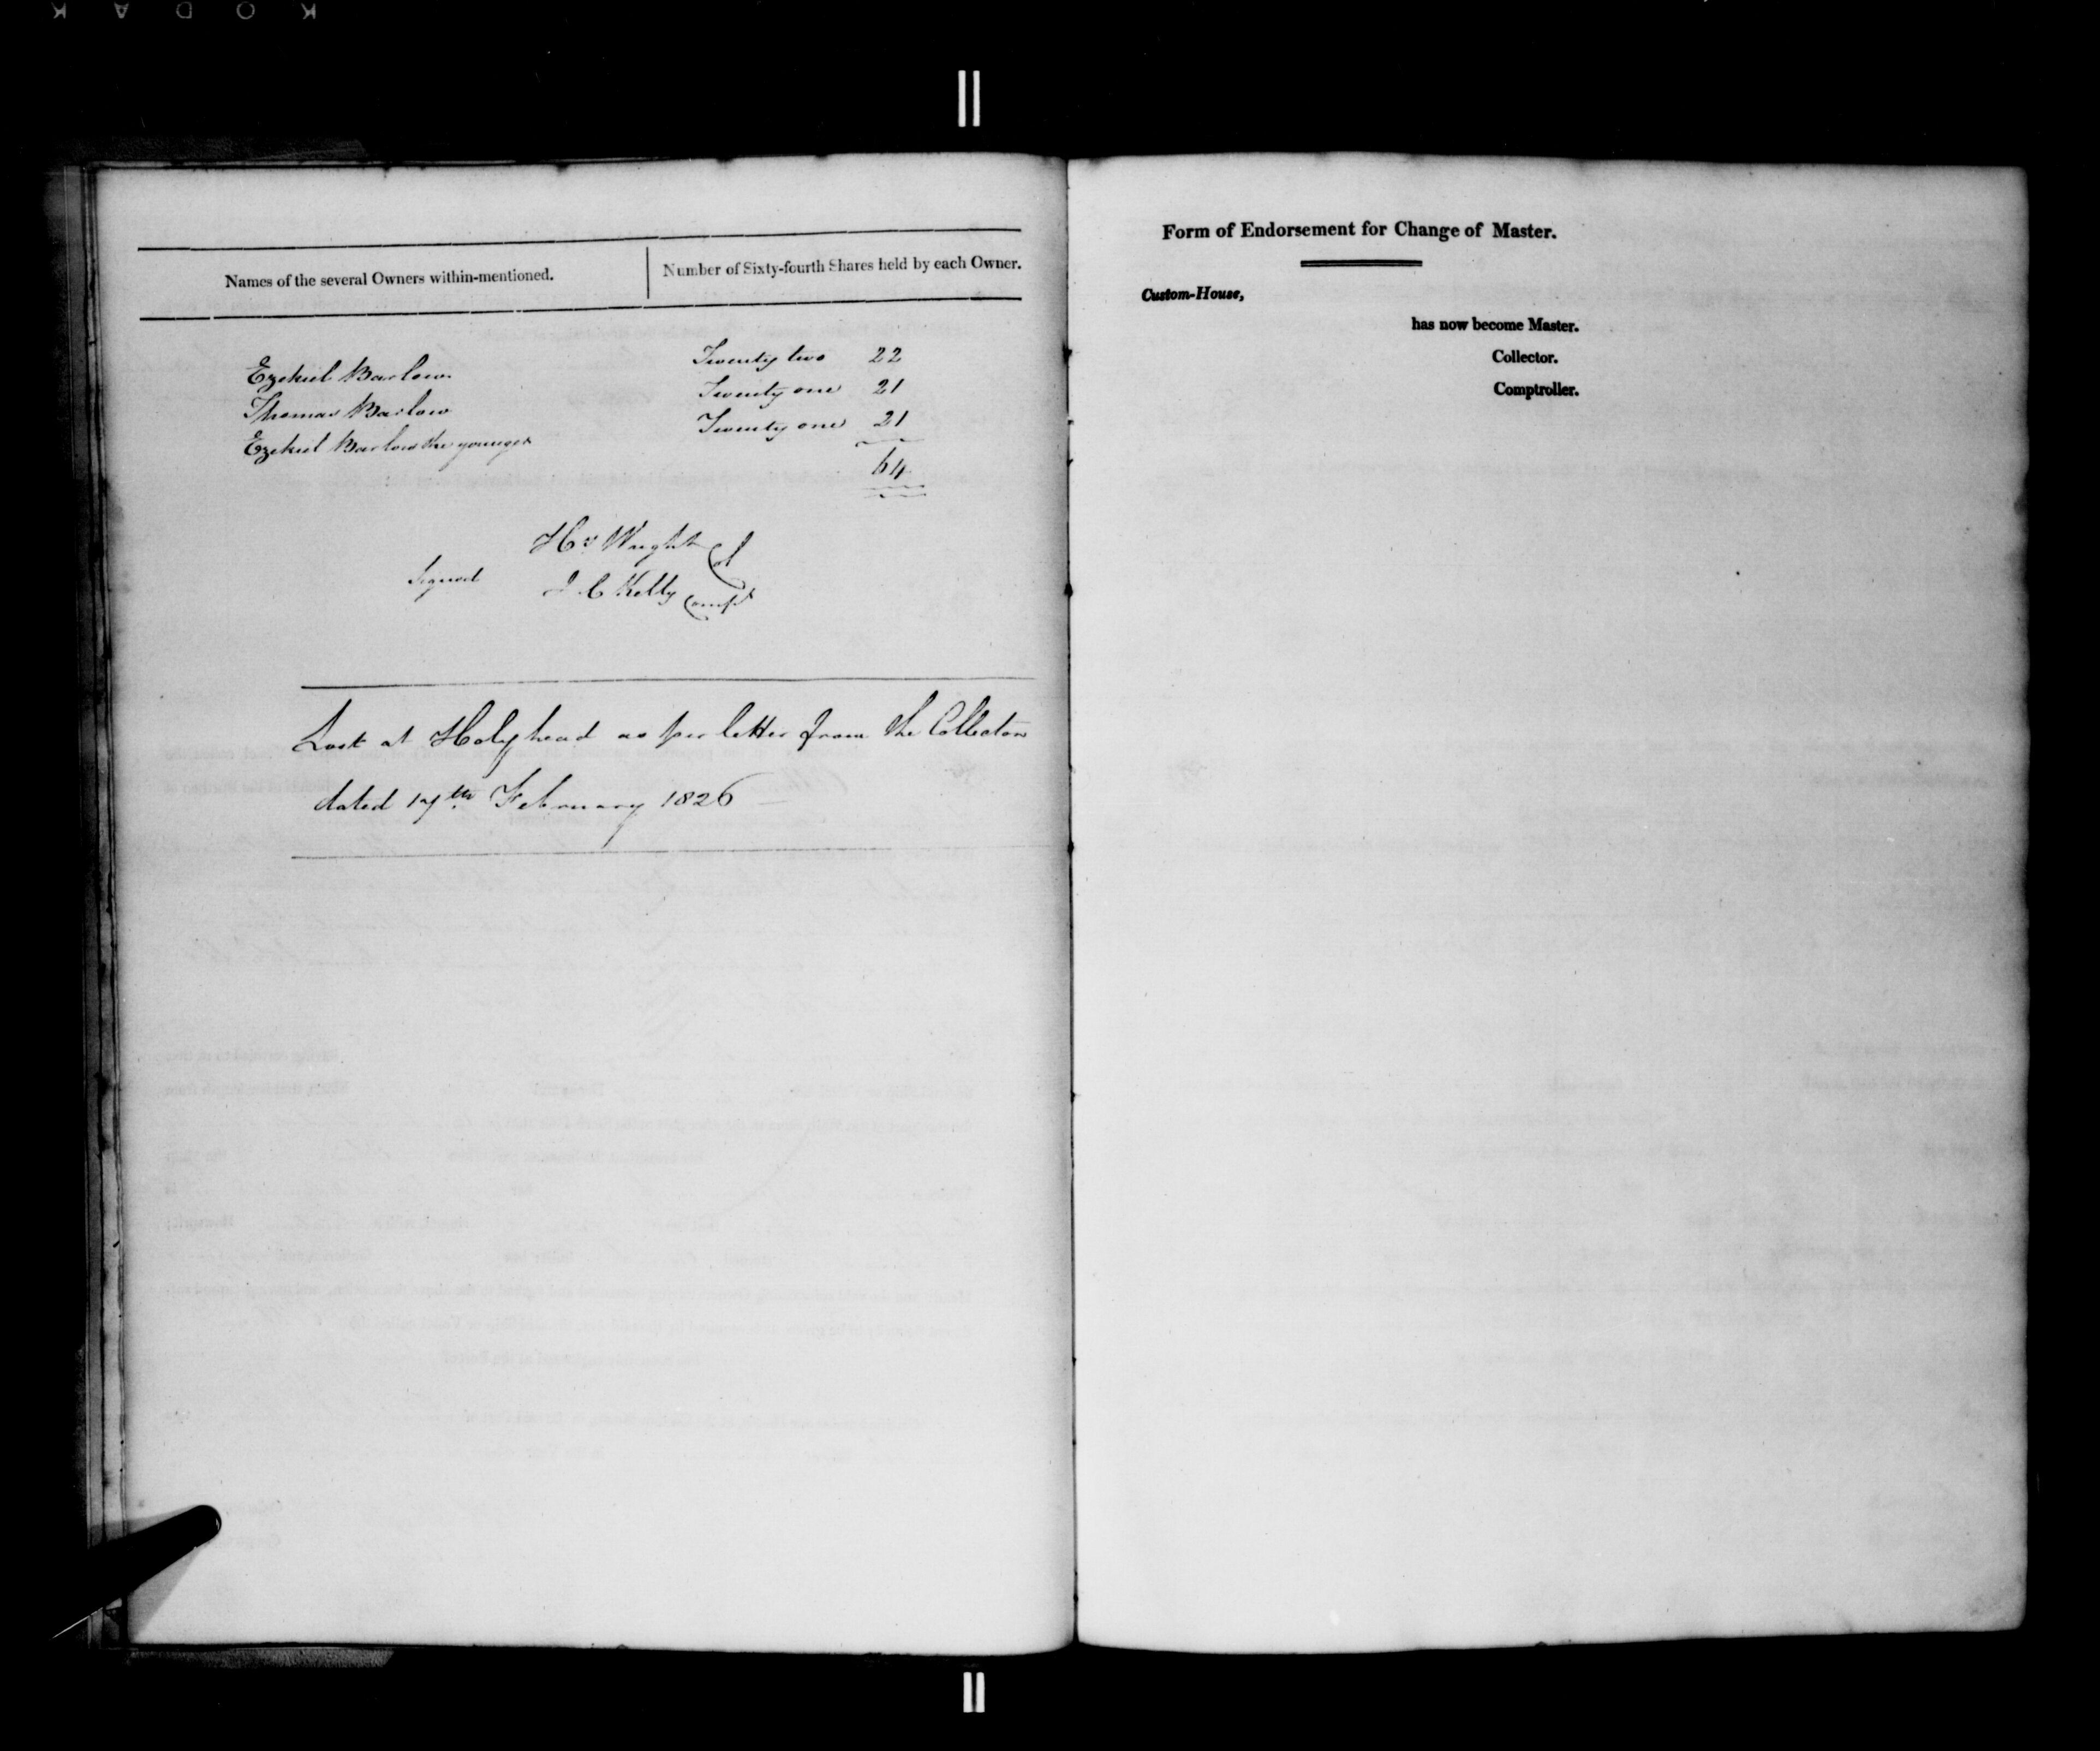 KODAK
Names of the several Owners within-mentioned. Number of Sixty-fourth Shares held by each Owner.
Ezekiel Barlow Twenty two 22
Thomas Barlow Twenty one 21
Ezekiel Barlow the younger Twenty one 21
64
Signed Hy Wright Col
J. C Kelly Compt
Lost at Holyhead as per letter from the Collector
dated 17th February 1826
Form of Endorsement for Change of Master.
Custom-House,
has now become Master.
Collector.
Comptroller.